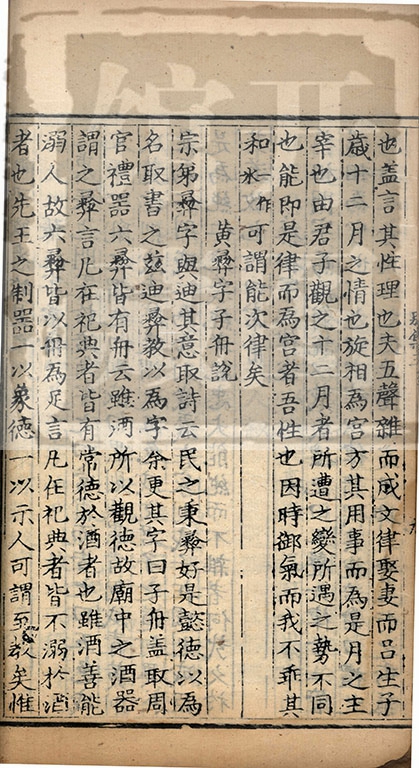 也蓋言其性理也夫五聲雜而成文律娶妻而吕生子
歲十二月之情也旋相為宫方其用事而為是月之主
宰也由君子觀之十二月者所遭之變所遇之勢不同
也能即是律而為宫者吾性也因時御氣而我不乖其
和一作水可謂能次律矣
黄彝字子舟說
宗弟彝字與迪其意取詩云民之秉彝好是懿德以為
名取書之兹迪彝教以為字余更其字曰子舟盖取周
官禮器六彝皆有舟云雖酒所以觀德故廟中之酒器
謂之彝言凡在祀典者皆有常德於酒者也雖酒善能
溺人故六彝皆以舟為足言凡在祀典者皆不溺於酒
者也先王之制器一以象德一以示人可謂至教矣惟